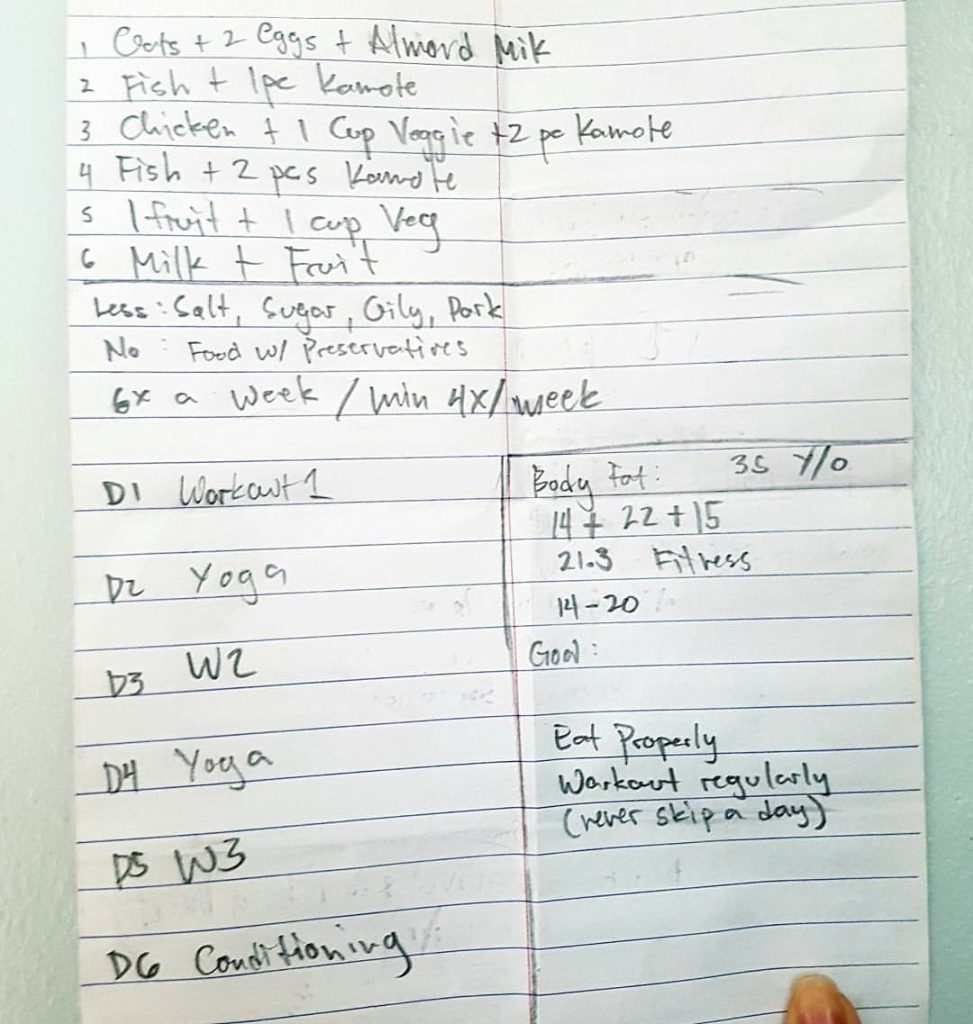 1 Oats + 2 Eggs + Almond Mik
2 Fish + 1pc Kamote
3 Chicken + 1 Cup Veggie +2 pc Kamote
4 Fish + 2 pcs Kamote
5 1 fruit + 1 cup Veg
6 Milk + Fruit
Less: Salt, Sugar, Oily, Pork
No: Food w/ Preservatives
6x a week / min 4x/week
D1 Workout 1
D2 Yoga
D3 W2
D4 Yoga
D5 W3
D6 Conditioning
Body Fat: 35 Y/O
14 + 22 + 15
21.3 Fitness
14-20
Goal:
Eat Properly
Workout regularly
(never skip a day)